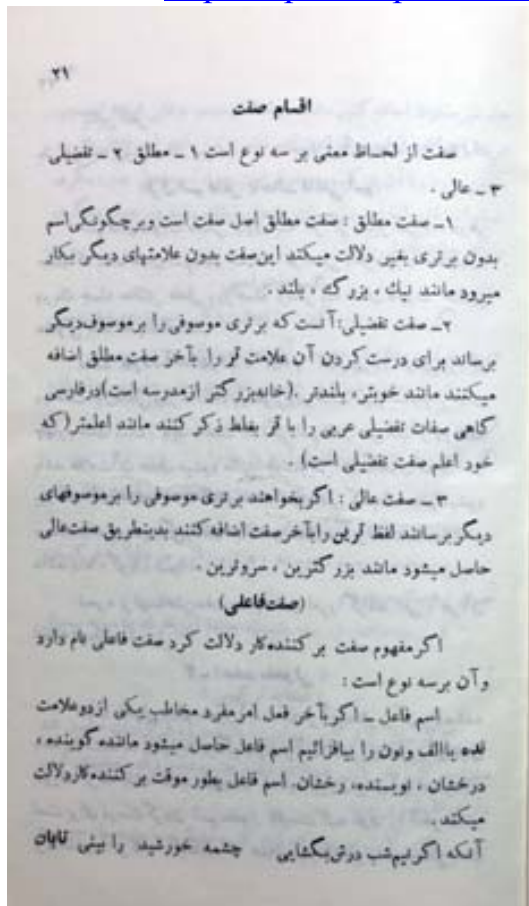 ۲۱
اقسام صفت
صفت از لحاظ معنی بر سه نوع است ۱ ـ مطلق ۲ ـ تفضیلی
۳ ـ عالی .
۱ـ صفت مطلق : صفت مطلق اصل صفت است وبرچگونگی اسم
بدون برتری بغیر دلالت میکند این صفت بدون علامتهای دیگر بکار
میرود مانند نیك ، بزرگ ، بلند .
۲ـ صفت تفضیلی: آنست که برتری موصوفی را بر موصوف دیگر
برساند برای درست کردن آن علامت تر را بآخر صفت مطلق اضافه
میکنند مانند خوبتر، بلندتر .(خانه بزرگتر ازمدرسه است)درفارسی
گاهی صفات تفضیلی عربی را با تر بغلط ذکر کنند مانند اعلمتر(که
خود اعلم صفت تفضیلی است) .
۳ ـ صفت عالی : اگر بخواهند برتری موصوفی را برموصوفهای
دیگر برسانند لفظ ترین رابآخر صفت اضافه کنند بدینطریق صفت عالی
حاصل میشود مانند بزرگترین ،
(صفت فاعلی)
اگر مفهوم صفت بر کننده کار دلالت کرد صفت فاعلی نام دارد
و آن برسه نوع است :
اسم فاعل ـ اگر بآخر فعل امر مفرد مخاطب یکی از دو علامت
نده یاالف ونون را بیافزائیم اسم فاعل حاصل میشود ماننده گوینده ،
درخشان ، نویسنده، رخشان. اسم فاعل بطور موقت بر کننده کاردلالت
میکند .
آنکه اگر نیم شب درش بگشایی چشمه خورشید را بینی تابان